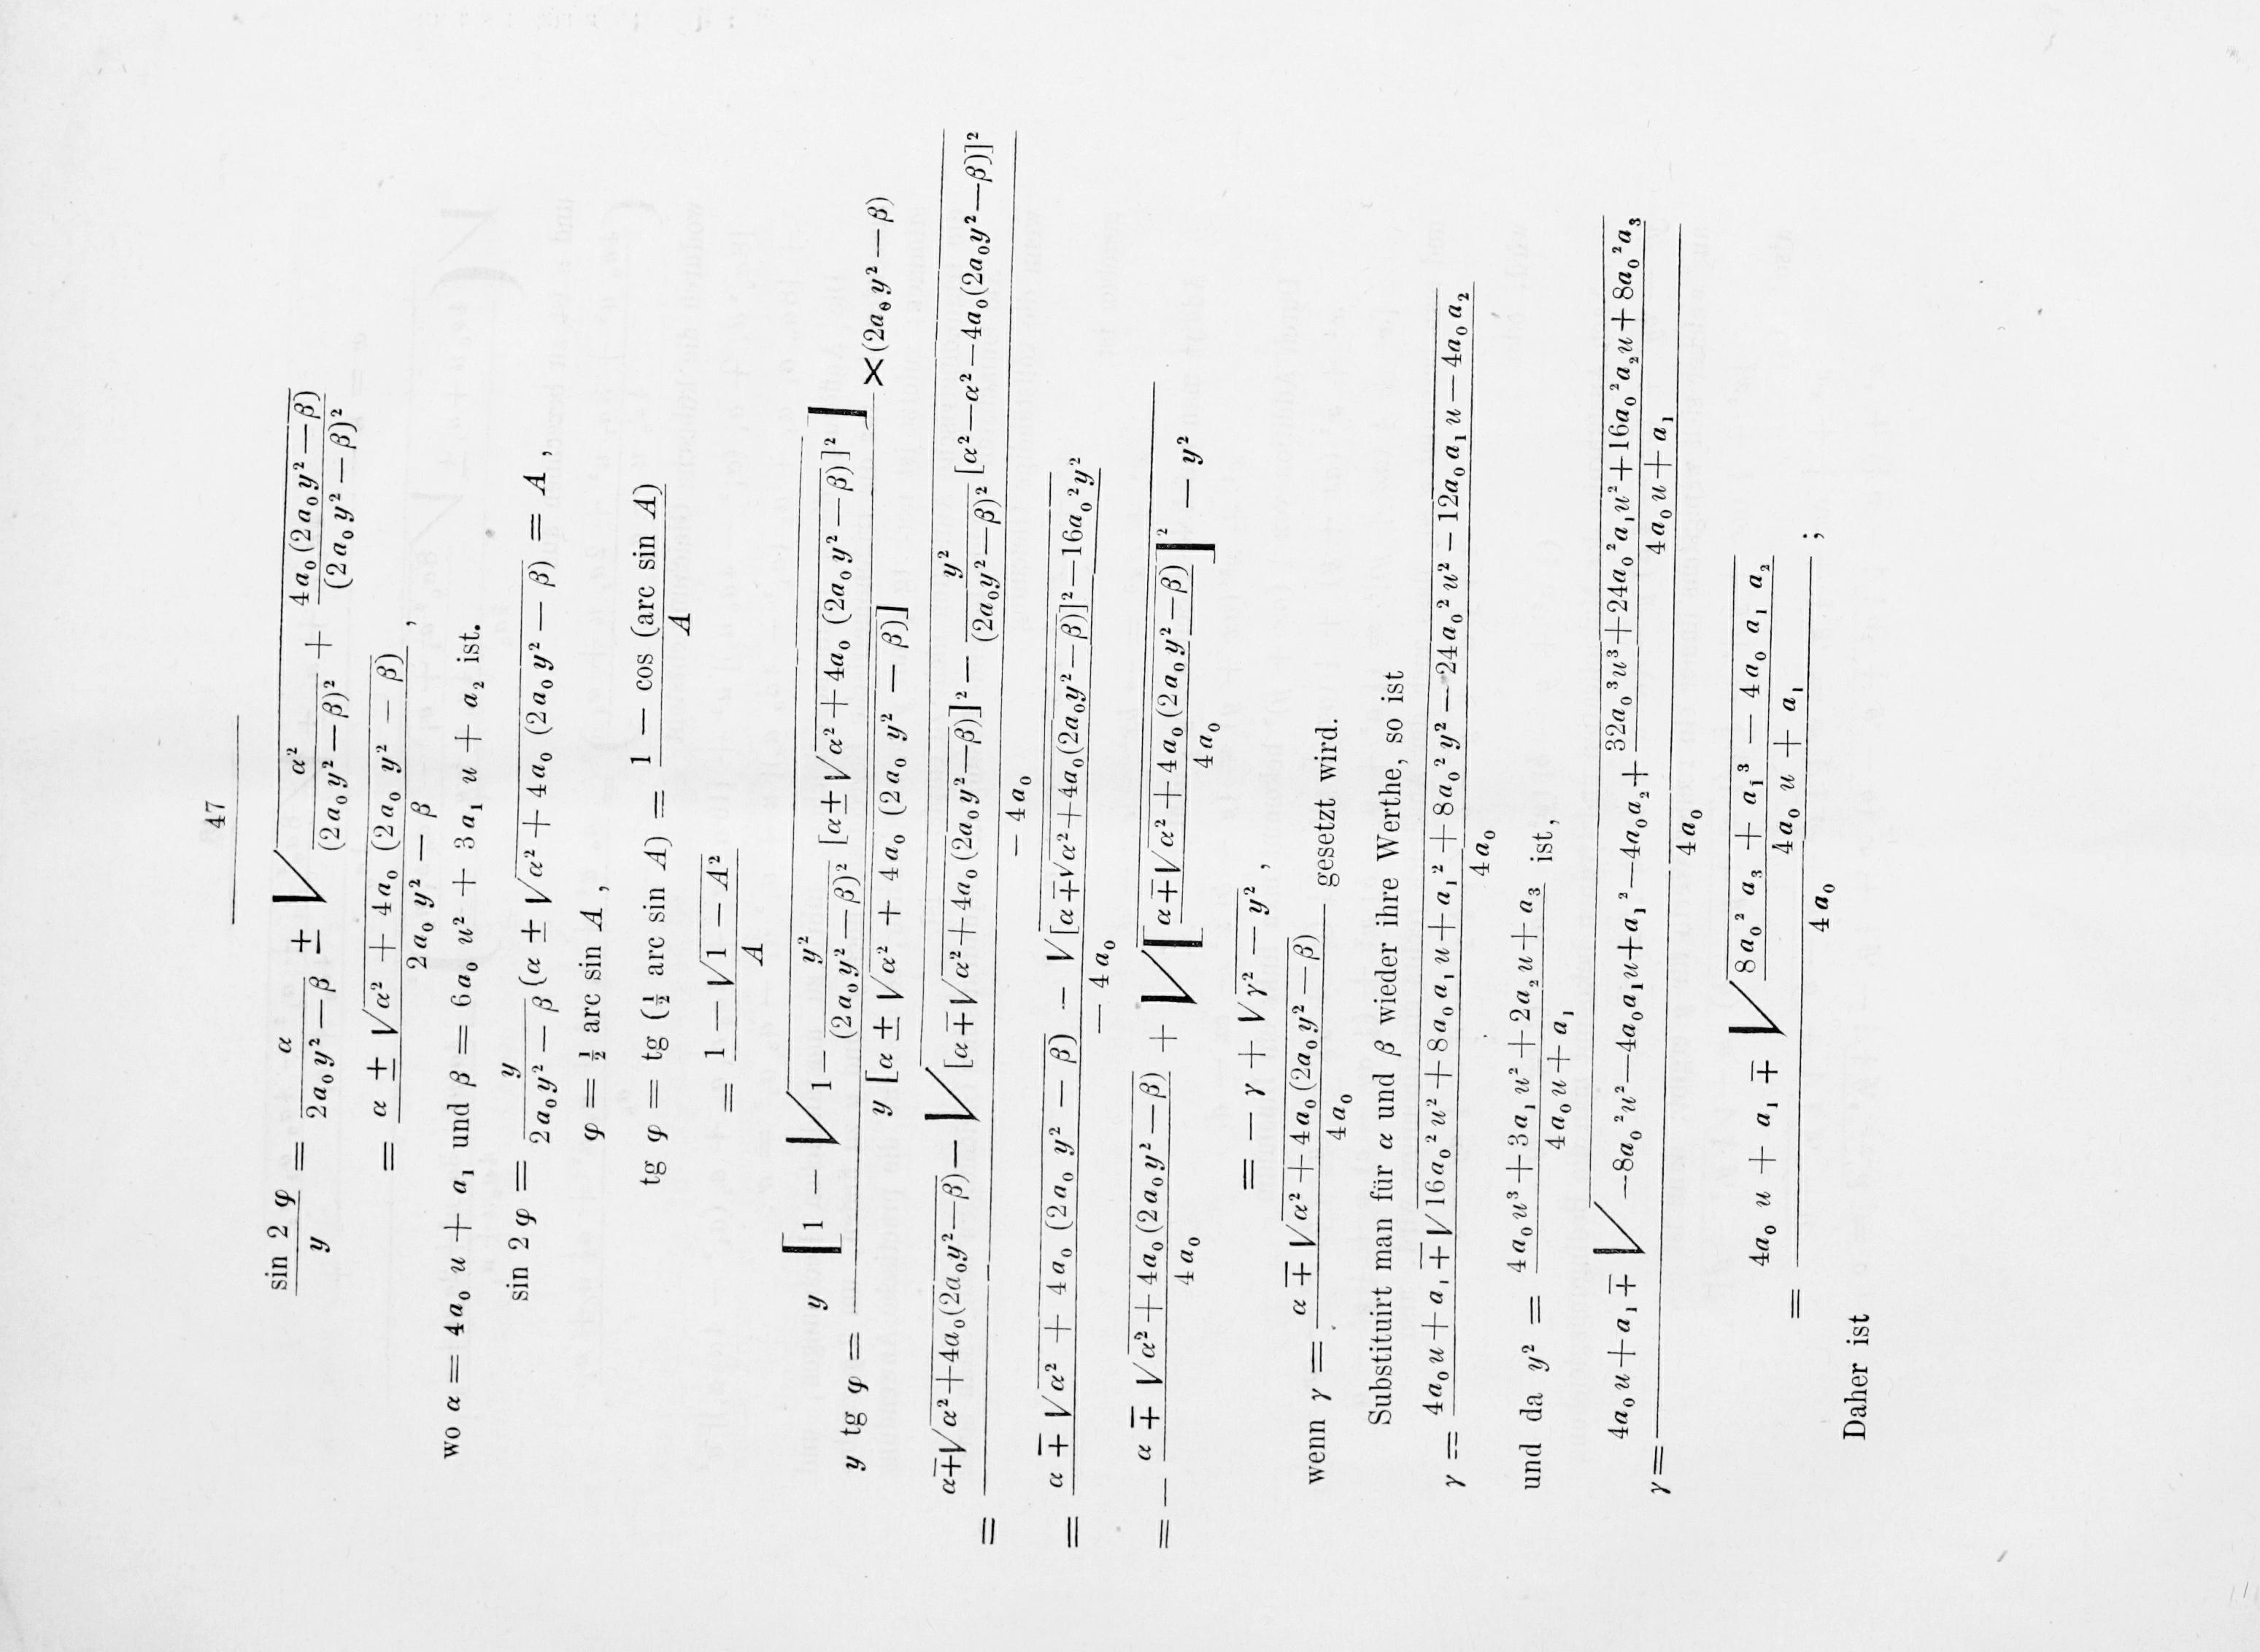 47
sin 2 φ / y = α / (2a₀y² — β) ± √( α² / (2a₀y² — β)² + 4a₀(2a₀y² — β) / (2a₀y² — β)² )
= (α ± √(α² + 4a₀ (2a₀ y² — β))) / (2a₀ y² — β) ,
wo α = 4a₀ u + a₁ und β = 6a₀ u² + 3a₁ u + a₂ ist.
sin 2 φ = y / (2a₀y² — β) (α ± √(α² + 4a₀ (2a₀y² — β)) = A ,
φ = ½ arc sin A ,
tg φ = tg (½ arc sin A) = (1 — cos (arc sin A)) / A
= (1 — √(1 — A²)) / A
y tg φ = y [1 — √(1 — y² / (2a₀y² — β)² [α ± √(α² + 4a₀ (2a₀y² — β))]²)] / (y [α ± √(α² + 4a₀ (2a₀ y² — β))]) × (2a₀y² — β)
= (α ∓ √(α² + 4a₀(2a₀y² — β)) — √([α ∓ √(α² + 4a₀(2a₀y² — β))]² — y² / (2a₀y² — β)² [α² — α² — 4a₀(2a₀y² — β)]²)) / — 4a₀
= (α ∓ √(α² + 4a₀ (2a₀ y² — β)) — √([α ∓ √(α² + 4a₀(2a₀y² — β))]² — 16a₀²y²)) / — 4a₀
= — (α ∓ √(α² + 4a₀(2a₀y² — β))) / 4a₀ + √([(α ∓ √(α² + 4a₀(2a₀y² — β))) / 4a₀]² — y²)
= — γ + √(γ² — y²) ,
wenn γ = (α ∓ √(α² + 4a₀(2a₀y² — β))) / 4a₀ gesetzt wird.
Substituirt man für α und β wieder ihre Werthe, so ist
γ = (4a₀u + a₁ ∓ √(16a₀²u² + 8a₀a₁u + a₁² + 8a₀²y² — 24a₀²u² — 12a₀a₁u — 4a₀a₂)) / 4a₀
und da y² = (4a₀u³ + 3a₁u² + 2a₂u + a₃) / (4a₀u + a₁) ist,
γ = (4a₀u + a₁ ∓ √(—8a₀²u² — 4a₀a₁u + a₁² — 4a₀a₂ + (32a₀³u³ + 24a₀²a₁u² + 16a₀²a₂u + 8a₀²a₃) / (4a₀u + a₁))) / 4a₀
= (4a₀ u + a₁ ∓ √((8a₀² a₃ + a₁³ — 4a₀ a₁ a₂) / (4a₀ u + a₁))) / 4a₀ ;
Daher ist